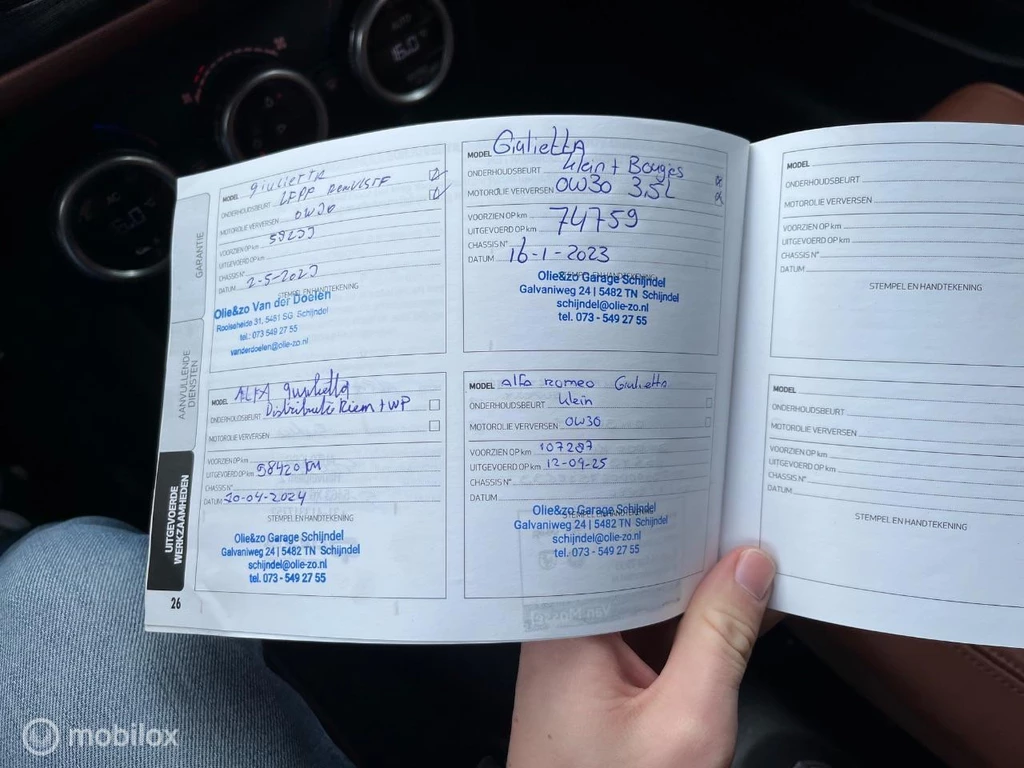 GARANTIE
AANVULLENDE
DIENSTEN
UITGEVOERDE
WERKZAAMHEDEN
26
MODEL Giulietta
ONDERHOUDSBEURT
MOTOROLIE VERVERSEN 0W30
VOORZIEN OP km
UITGEVOERD OP km
CHASSIS N°
DATUM 2-5-2023
STEMPEL EN HANDTEKENING
Olie&zo Van der Doelen
Rooiseheide 31, 5481 SG, Schijndel
tel.: 073 549 27 55
vanderdoelen@olie-zo.nl
MODEL Giulietta
ONDERHOUDSBEURT Klein + Bougies
MOTOROLIE VERVERSEN 0W30 3,5L
VOORZIEN OP km
UITGEVOERD OP km 74759
CHASSIS N°
DATUM 16-1-2023
Olie&zo Garage Schijndel
Galvaniweg 24 | 5482 TN Schijndel
schijndel@olie-zo.nl
tel. 073 - 549 27 55
MODEL ALFA Giulietta
ONDERHOUDSBEURT Distributie Riem + WP
MOTOROLIE VERVERSEN
VOORZIEN OP km
UITGEVOERD OP km 98420 KM
CHASSIS N°
DATUM 20-04-2024
STEMPEL EN HANDTEKENING
Olie&zo Garage Schijndel
Galvaniweg 24 | 5482 TN Schijndel
schijndel@olie-zo.nl
tel. 073 - 549 27 55
MODEL Alfa romeo Giulietta
ONDERHOUDSBEURT Klein
MOTOROLIE VERVERSEN 0W30
VOORZIEN OP km 107287
UITGEVOERD OP km 12-04-25
CHASSIS N°
DATUM
STEMPEL EN HANDTEKENING
Olie&zo Garage Schijndel
Galvaniweg 24 | 5482 TN Schijndel
schijndel@olie-zo.nl
tel. 073 - 549 27 55
MODEL
ONDERHOUDSBEURT
MOTOROLIE VERVERSEN
VOORZIEN OP km
UITGEVOERD OP km
CHASSIS N°
DATUM
STEMPEL EN HANDTEKENING
MODEL
ONDERHOUDSBEURT
MOTOROLIE VERVERSEN
VOORZIEN OP km
UITGEVOERD OP km
CHASSIS N°
DATUM
STEMPEL EN HANDTEKENING
mobilox